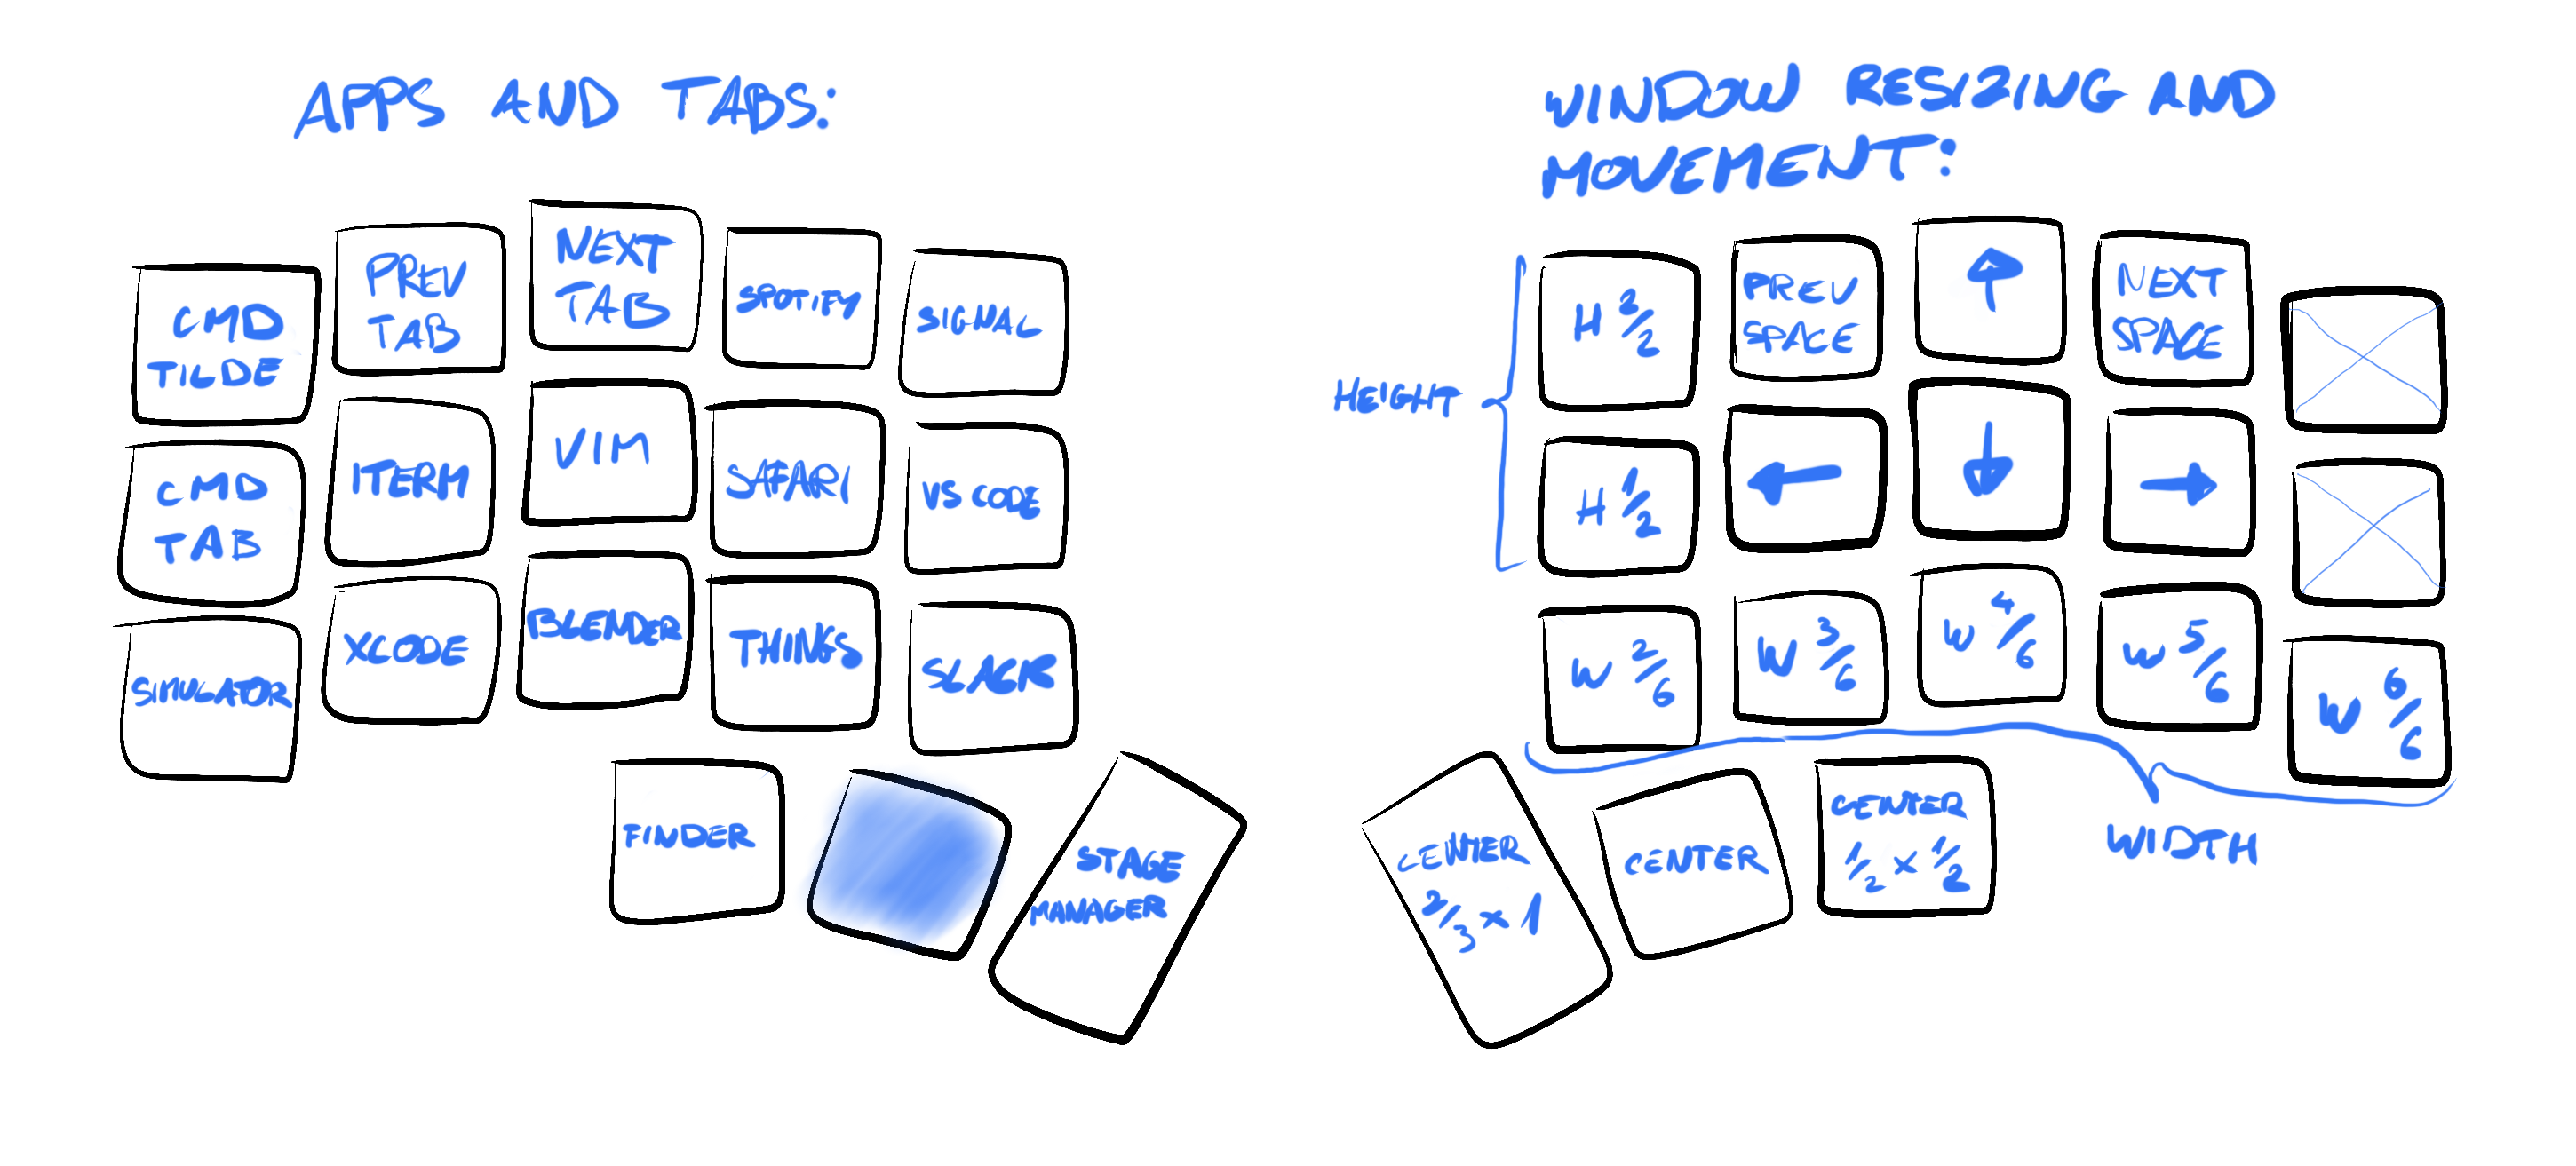 APPS AND TABS:
CMD
TILDE
PREV
TAB
NEXT
TAB
SPOTIFY
SIGNAL
CMD
TAB
ITERM
VIM
SAFARI
VS CODE
SIMULATOR
XCODE
BLENDER
THINGS
SLACK
FINDER
STAGE
MANAGER
WINDOW RESIZING AND
MOVEMENT:
HEIGHT
H 2/2
PREV
SPACE
↑
NEXT
SPACE
H 1/2
←
↓
→
W 2/6
W 3/6
W 4/6
W 5/6
W 6/6
WIDTH
CENTER
2/3 × 1
CENTER
CENTER
1/2 × 1/2